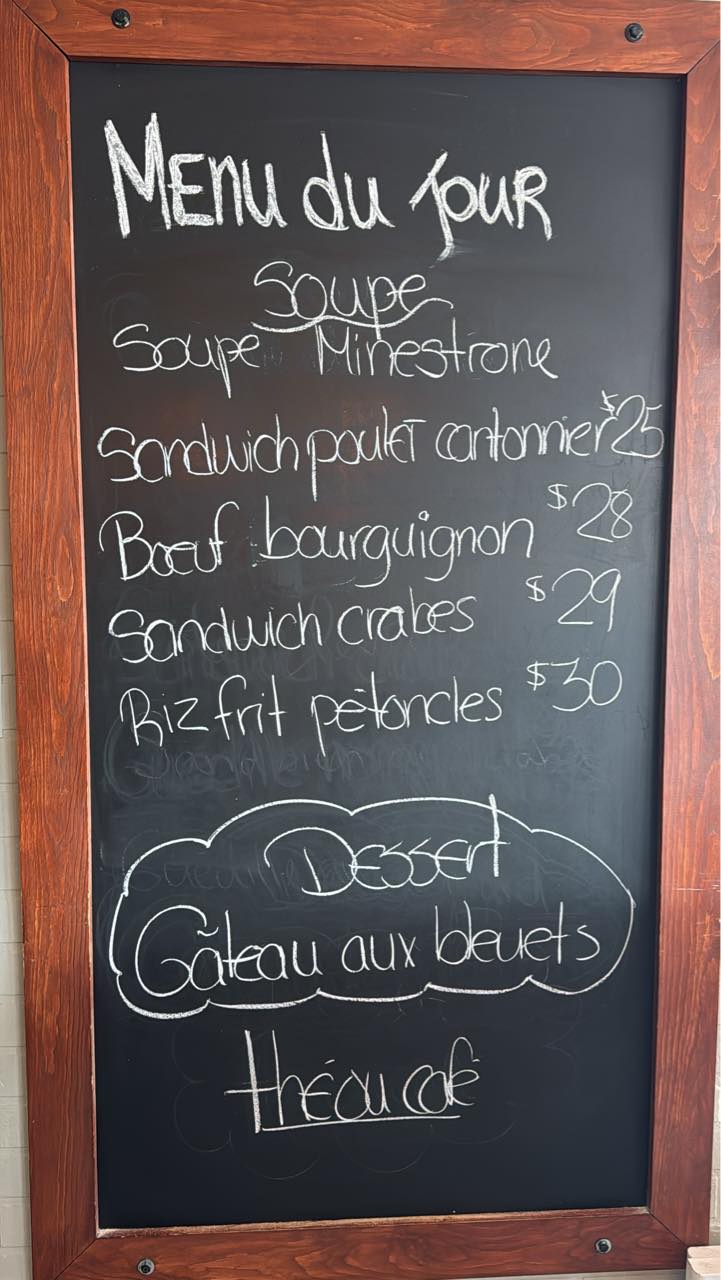 MEnu du JOUR
Soupe
Soupe Minestrone
Sandwich poulet cantonnier $25
Bœuf bourguignon $28
Sandwich crabes $29
Riz frit pétoncles $30
Dessert
Gâteau aux bleuets
thé ou café